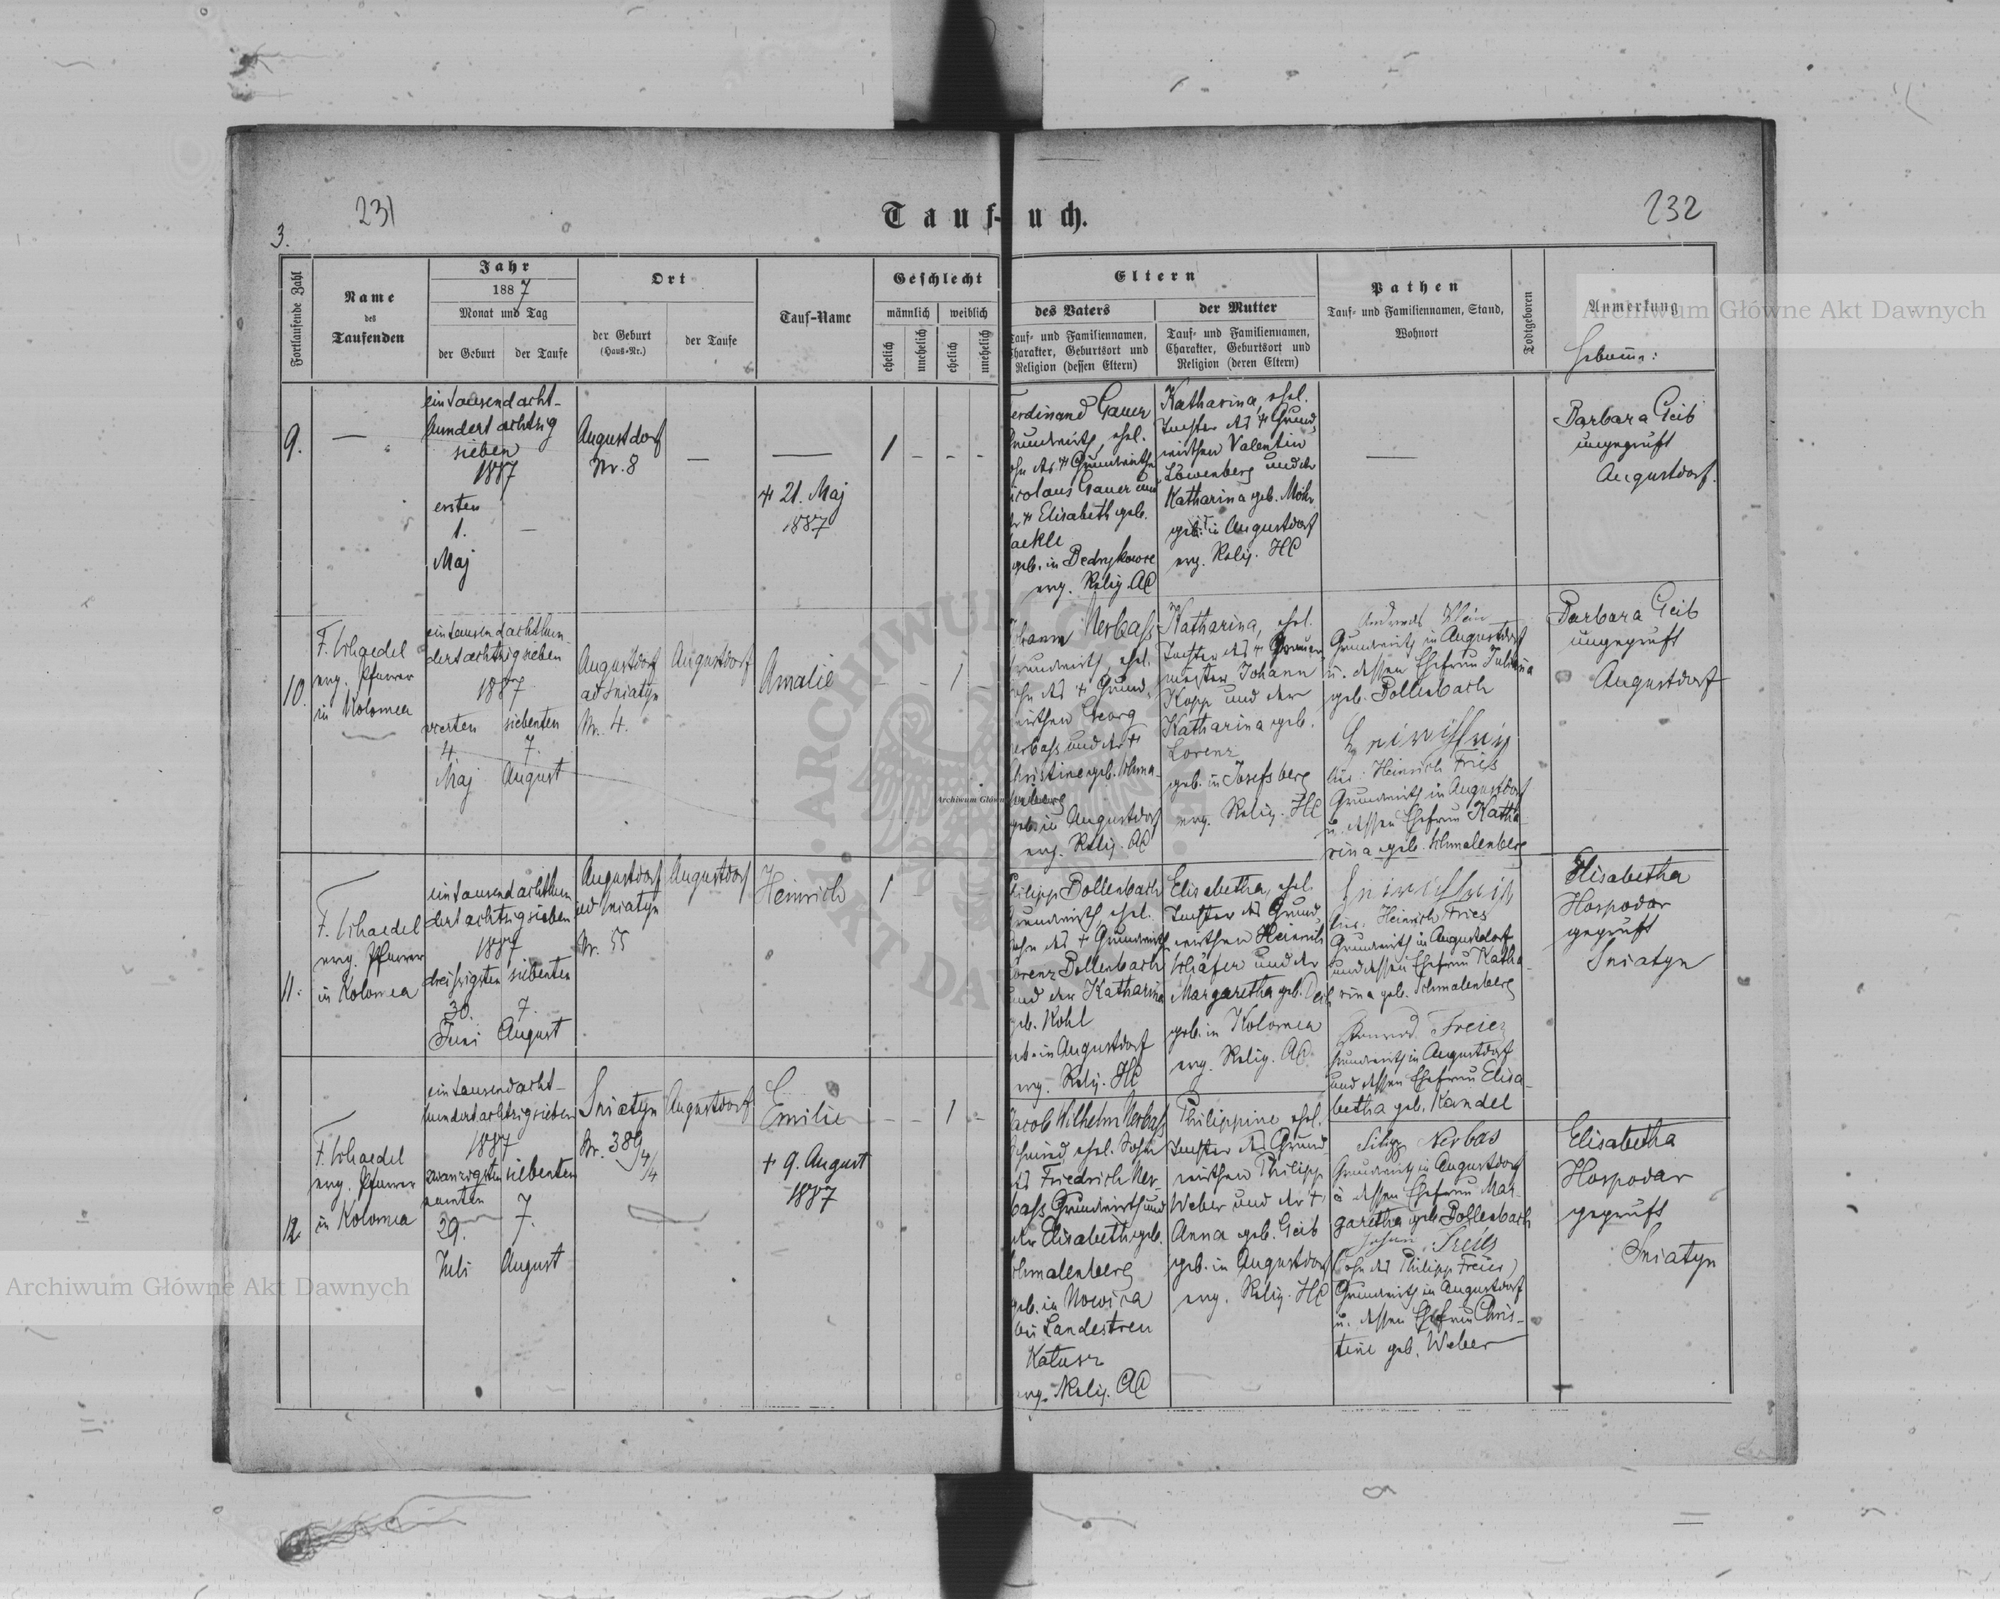 231
232
3.
Tauf-
uch.
Fortlaufende Zahl
Name
des
Taufenden
Jahr
1887
Monat und Tag
der Geburt
der Taufe
Ort
der Geburt
(Haus-Nr.)
der Taufe
Tauf-Name
Geschlecht
männlich
weiblich
ehelich
unehelich
ehelich
unehelich
Eltern
des Vaters
auf- und Familiennamen,
harakter, Geburtsort und
Religion (dessen Eltern)
der Mutter
Tauf- und Familiennamen,
Charakter, Geburtsort und
Religion (deren Eltern)
Pathen
Tauf- und Familiennamen, Stand,
Wohnort
Todtgeboren
Anmerkung
9.
—
ein tausend acht-
hundert achtzig
sieben
1887
ersten
1.
Maj
—
Augustdorf
Nr. 8
—
—
21. Maj
1887
1
-
-
-
erdinand Gauer
Grundwirth, ehel.
ohn des Grundwirthen
icolaus Gauer und
Elisabeth geb.
aekle
geb. in Bednykowce
evg. Relig. AC
Katharina, ehel.
Tochter des Grund-
wirthen Valentin
Löwenberg und der
Katharina geb. Mohr
geb. in Augustdorf
evg. Relig. HC
—
Barbara Geib
ungeprüft
Augustdorf.
10.
F. Schaedel
evg. Pfarrer
in Kolomea
ein tausend achthun
dert achtzig sieben
1887
vierten
4.
Maj
siebenten
7.
August
Augustdorf
ad Sniatyn
Nr. 4.
Augustdorf
Amalie
-
-
1
-
ohann Nerbass
Grundwirth, ehel.
ohn des Grund-
wirthen Georg
erbass und der
Christine geb. Schma-
lenberg
geb. in Augustdorf
evg. Relig. AC
Katharina, ehel.
Tochter des
meister Johann
Kopp und der
Katharina geb.
Lorenz
geb. in Josefsberg
evg. Relig. HC
Andreas Klein
Grundwirth in Augustdorf
u. dessen Ehefrau Juliana
geb. Bollenbach
Heinrich Fries
Grundwirth in Augustdorf
u. dessen Ehefrau Katha-
rina geb. Schmalenberg
Barbara Geib
ungeprüft
Augustdorf
11.
F. Schaedel
evg. Pfarrer
in Kolomea
ein tausend achthun
dert achtzig sieben
1887
dreissigsten
30.
Juni
siebenten
7.
August
Augustdorf
ad Sniatyn
Nr. 55
Augustdorf
Heinrich
1
-
-
-
hilipp Bollenbach
Grundwirth, ehel.
ohn des + Grundwirth
orenz Bollenbach
und der Katharina
geb. Kohl
geb. in Augustdorf
evg. Relig. HC
Elisabetha, ehel.
Tochter des Grund-
wirthen Heinrich
Schäfer und der
Margaretha geb.
geb. in Kolomea
evg. Relig. AC.
Heinrich Fries
Grundwirth in Augustdorf
und dessen Ehefrau Katha-
rina geb. Schmalenberg
Konrad Freier
Grundwirth in Augustdorf
und dessen Ehefrau Elisa-
betha geb. Kandel
Elisabetha
Hospodar
geprüft
Sniatyn
12.
F. Schaedel
evg. Pfarrer
in Kolomea
ein tausend acht-
hundert achtzig sieben
1887
zwanzigsten
neunten
29.
Juli
siebenten
7.
August
Sniatyn
Nr. 389
4/4
Augustdorf
Emilie
+ 9. August
1887
-
-
1
-
acob Wilhelm Nerbass
Schmied ehel. Sohn
des Friedrich Ner-
bass Grundwirth und
der Elisabeth geb.
Schmalenberg
geb. in Nowica
bei Landestreu
Kalusz
evg. Relig. AC
Philippine ehel.
Tochter des Grund-
wirthen Philipp
Weber und der +
Anna geb. Geib
geb. in Augustdorf
evg. Relig. HC
Filipp Nerbas
Grundwirth in Augustdorf
u. dessen Ehefrau Mar-
garetha geb. Bollenbach
Johann Freier
(Sohn des Philipp Freier)
Grundwirth in Augustdorf
u. dessen Ehefrau Chris-
tine geb. Weber
Elisabetha
Hospodar
geprüft
Sniatyn
Archiwum Główne Akt Dawnych
Archiwum Główne Akt Dawnych